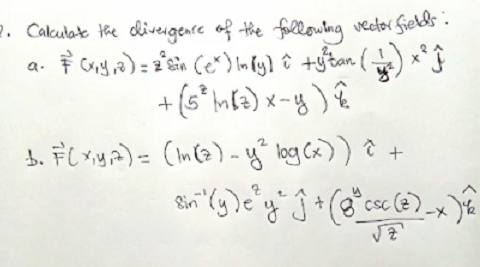 2. Calculate the divergence of the following vector fields:
a. F⃗ (x,y,z) = z² sin (eˣ) ln(y) î + y² tan (1/y²) x² ĵ
+ (5ᶻ ln(z) x - y) k̂
b. F⃗(x,y,z) = (ln(z) - y² log(x)) î +
sin⁻¹(y) eᶻ y² ĵ + (8ʸ csc(z)/√z - x) k̂